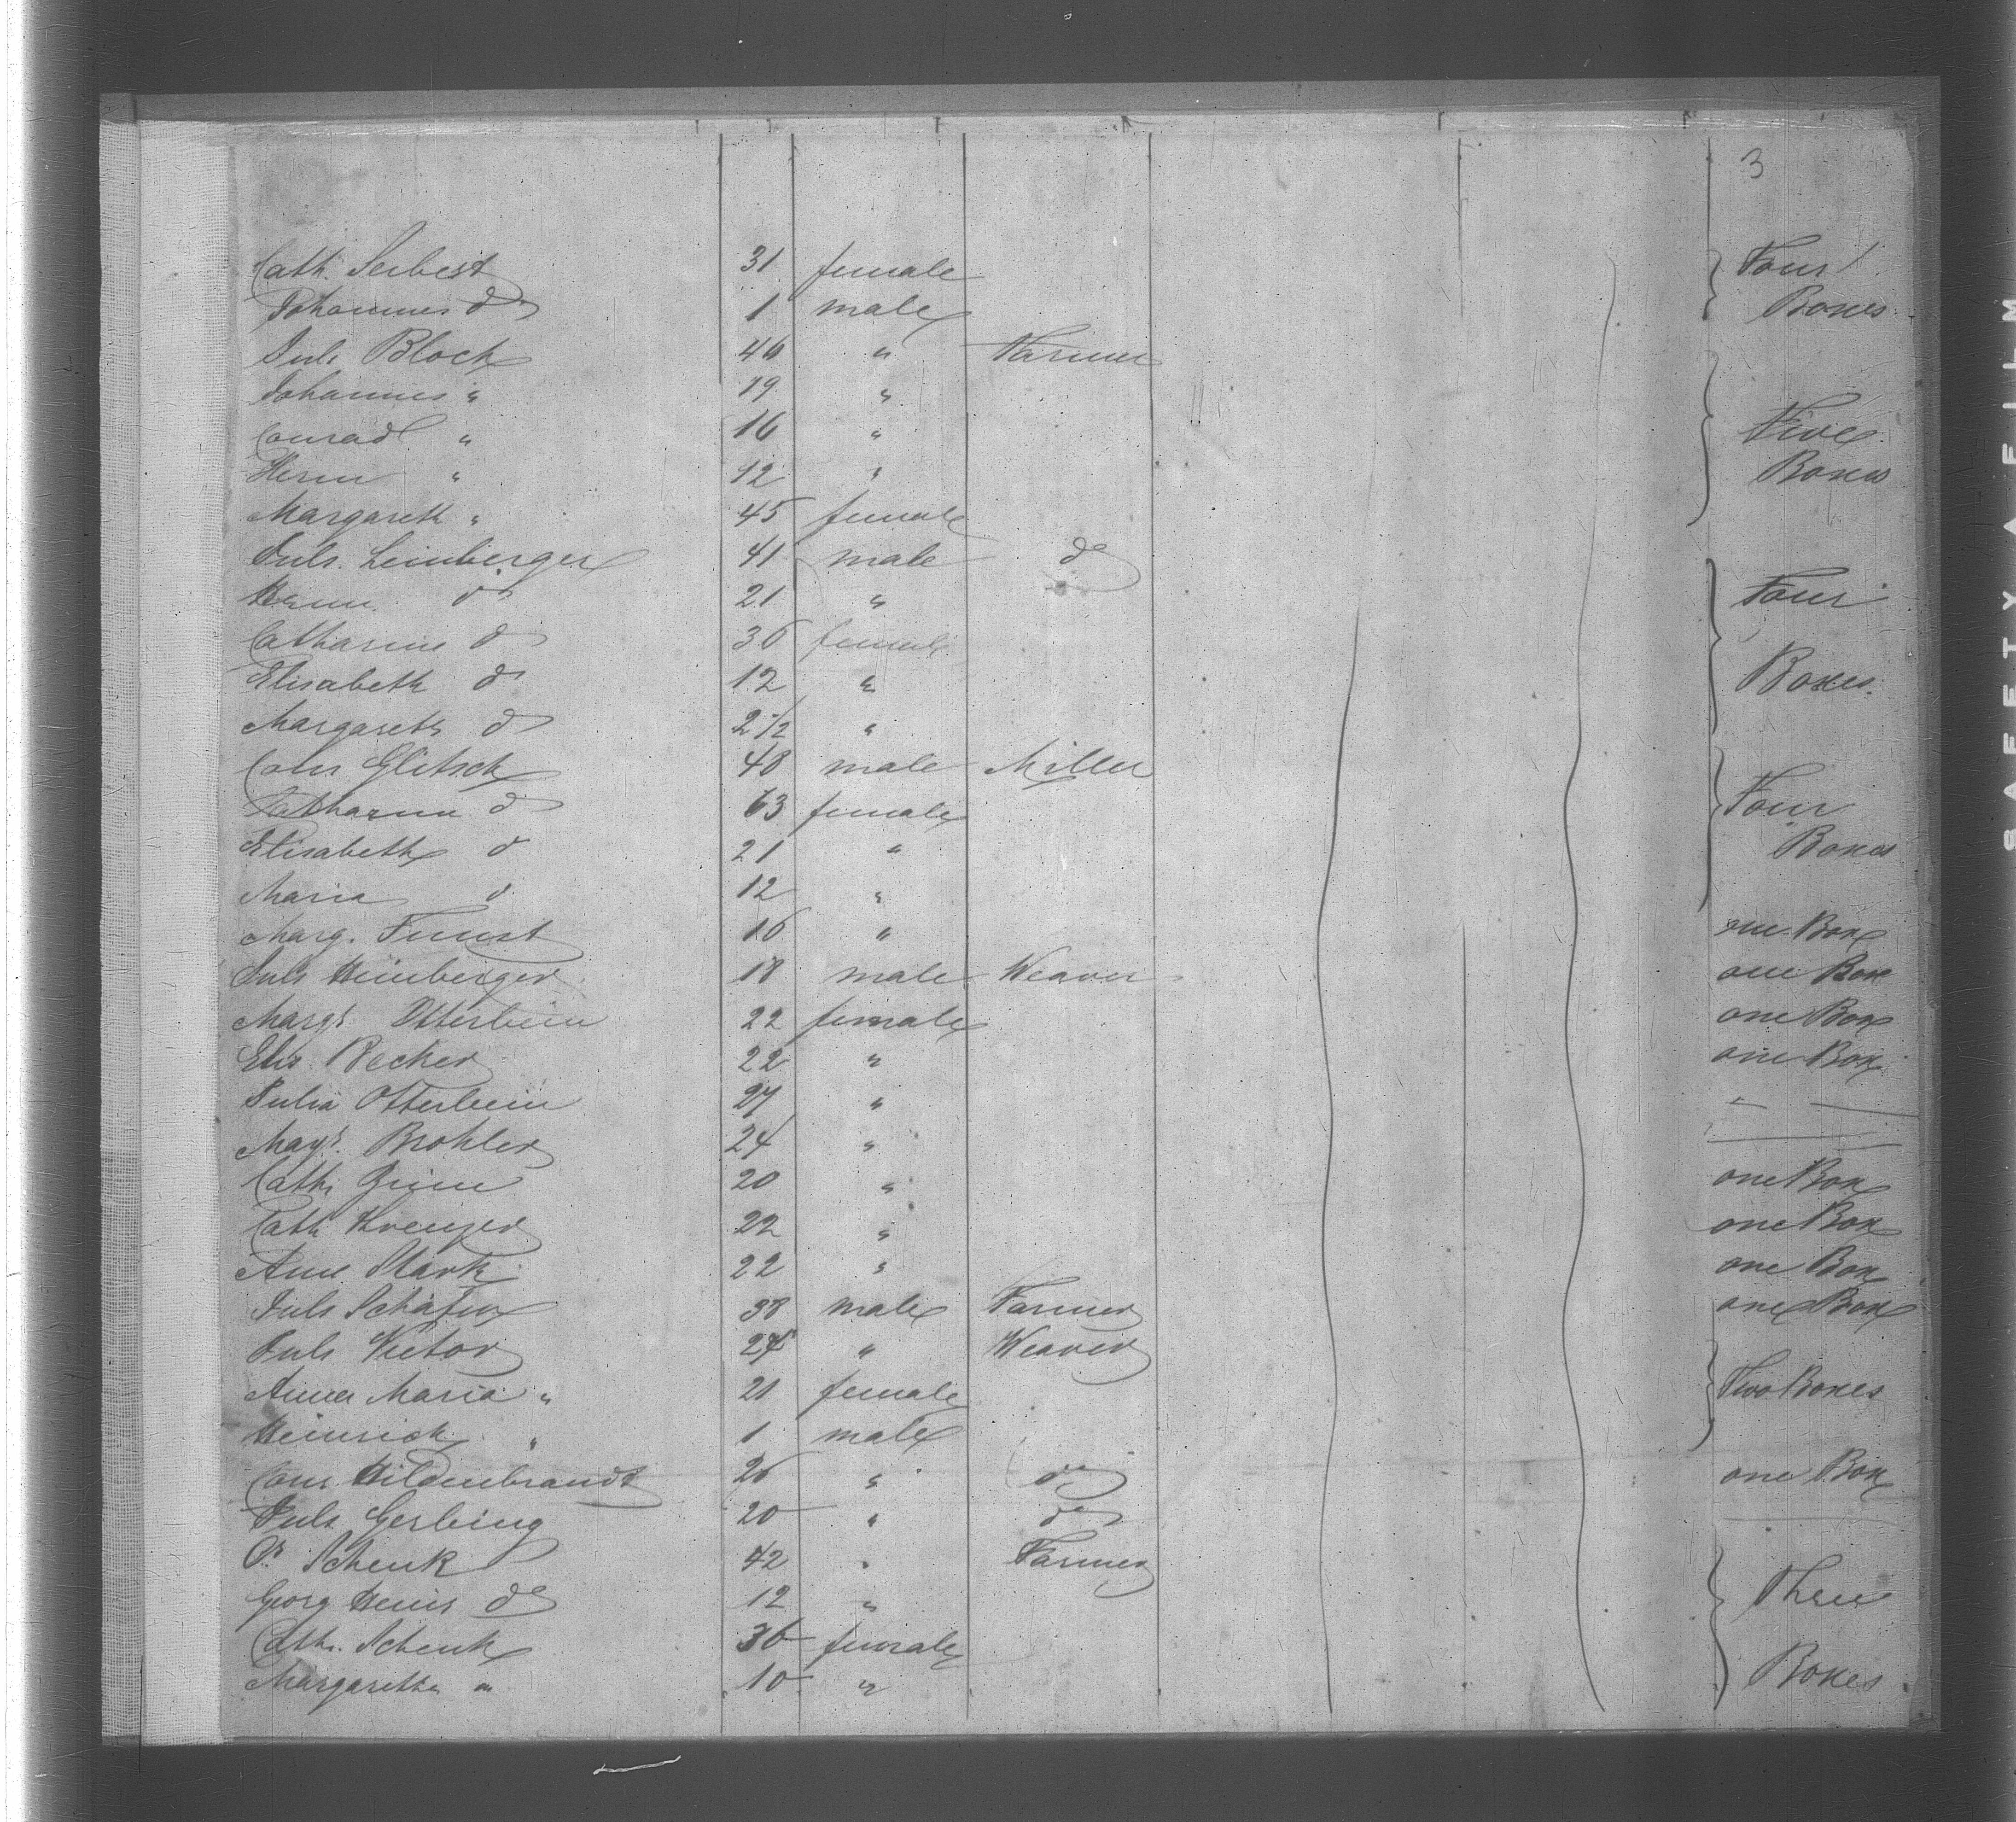 3
Cath. Seibert 31 female Four
Johannes do 1 male Boxes
Juls Block 46 " Farmer
Johannes " 19 "
Conrad " 16 " Five
Herm " 12 " Boxes
Margareth " 45 female
Juls. Leinberger 41 male do
Herm. do 21 " Four
Catharine do 36 female
Elisabeth do 12 " Boxes.
Margareth do 2 1/2 "
Cons Glitsch 48 male Miller
Catharina do 63 female Four
Elisabeth do 21 " Boxes
Maria do 12 "
Marg. 16 " one Box
Juls Heimberger 18 male Weaver one Box
Margt. Otterbein 22 female one Box
Elis. Becker 22 " one Box
Julia Otterbein 27 "
Margt. Brohler 24 "
Cath. 20 " one Box
Cath 22 " one Box
Anna Stark 22 " one Box
Juls Schäfer 38 male Farmer one Box
Juls Victor 24 " Weaver
Anna Maria " 21 female Two Boxes
Heinrich " 1 male
Conr. Hildenbrandt 26 " do one Box
Juls Gerbing 20 " do
Schenk 42 " Farmer
Georg Heinr do 12 " Three
Cath. Schenk 36 female
Margaretha " 10 " Boxes
SAFETY FILM